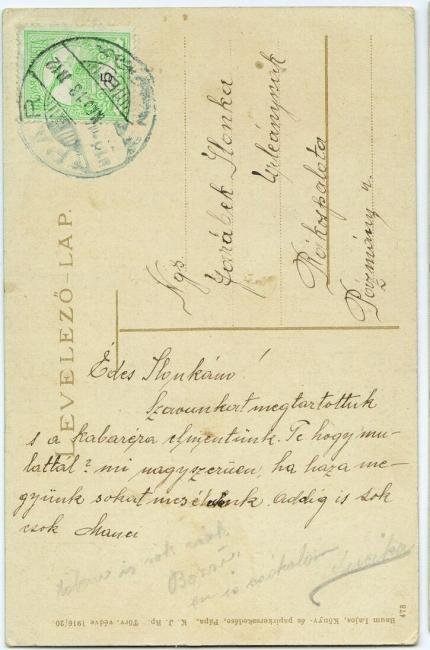 LEVELEZŐ-LAP.
Ngs.
Ilonka
Úrleánynak
Rákospalota
Pázmány u.
Édes Ilonkám!
Szavunkat megtartottuk
s a kabaréra elmentünk. Te hogy mu-
lattál? mi nagyszerűen, ha haza me-
gyünk sokat mesélünk addig is sok
csok Manci
Baum Lajos, Könyv- és papirkereskedése, Pápa. K. J. Bp. Törv. védve 1916/20.
478